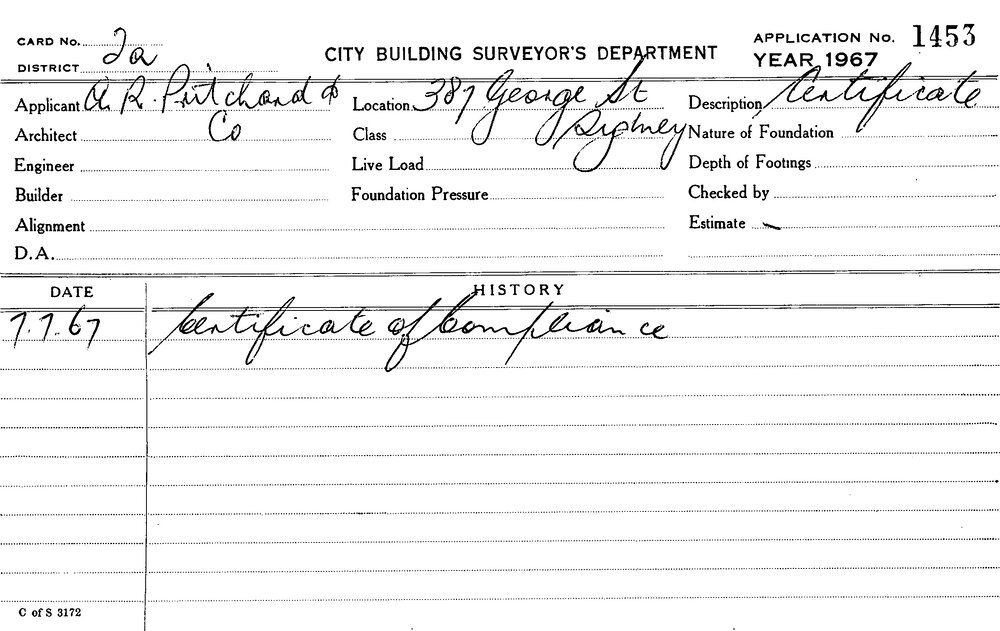 CARD No. 2a
DISTRICT
CITY BUILDING SURVEYOR'S DEPARTMENT
APPLICATION No. 1453
YEAR 1967
Applicant A. R. Pritchard & Co
Location 387 George St Sydney
Description Certificate
Architect
Class
Nature of Foundation
Engineer
Live Load
Depth of Footings
Builder
Foundation Pressure
Checked by
Alignment
Estimate
D.A.
DATE
HISTORY
7.7.67 Certificate of Compliance
C of S 3172